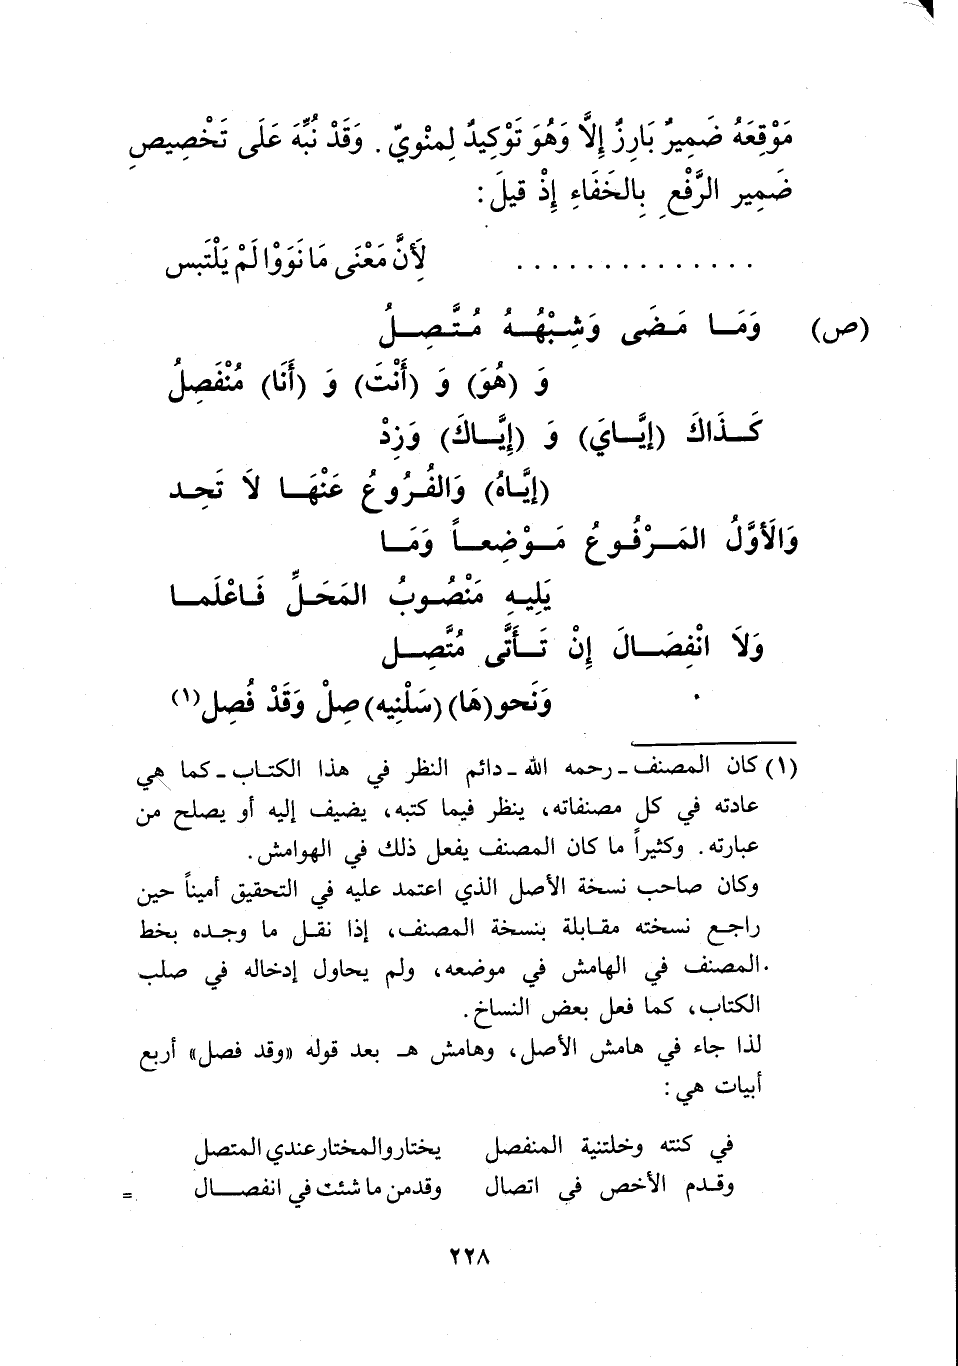 مَوْقِعَهُ ضَمِيرٌ بَارِزٌ إِلَّا وَهُوَ تَوْكِيدٌ لِمنْويّ. وَقَدْ نُبِّهَ عَلَى تَخْصِيصِ
ضَمِيرِ الرَّفْعِ بِالخَفَاءِ إِذْ قيلَ:
. . . . . . . . . . . . . . لِأَنَّ مَعْنَى مَا نَوَوْا لَمْ يَلْتَبس
(ص) وَمَـا مَـضَى وَشِبْهُـهُ مُـتَّـصِـلُ
وَ (هُوَ) وَ (أَنْتَ) وَ (أَنَا) مُنْفَصِلُ
كَـذَاكَ (إيَّـايَ) وَ (إيَّـاكَ) وَزِدْ
(إيَّـاهُ) وَالفُـرُوعُ عَنْهَـا لَا تَحِـد
وَالأوَّلُ المَـرْفُـوعُ مَـوْضِعـاً وَمَـا
يَلِيـهِ مَنْصُـوبُ المَحَـلِّ فَـاعْلَمـا
وَلَا انْفِصَـالَ إِنْ تَـأَتَّى مُتَّصِـل
وَنَحو(هَا) (سَلْنِيه) صِلْ وَقَدْ فُصِل(١)
(١) كان المصنف ـ رحمه الله ـ دائم النظر في هذا الكتـاب ـ كما هي
عادته في كل مصنفاته، ينظر فيما كتبه، يضيف إليه أو يصلح من
عبارته. وكثيراً ما كان المصنف يفعل ذلك في الهوامش.
وكان صاحب نسخة الأصل الذي اعتمد عليه في التحقيق أميناً حين
راجـع نسخته مقـابلة بنسخة المصنف، إذا نقـل ما وجـده بخط
المصنف في الهامش في موضعه، ولم يحاول إدخاله في صلب
الكتاب، كما فعل بعض النساخ.
لذا جاء في هامش الأصل، وهامش هـ بعد قوله «وقد فصل» أربع
أبيات هي:
في كنته وخلتنية المنفصل يختار والمختار عندي المتصل
وقـدم الأخص في اتصال وقدمن ما شئت في انفصـــال =
٢٢٨